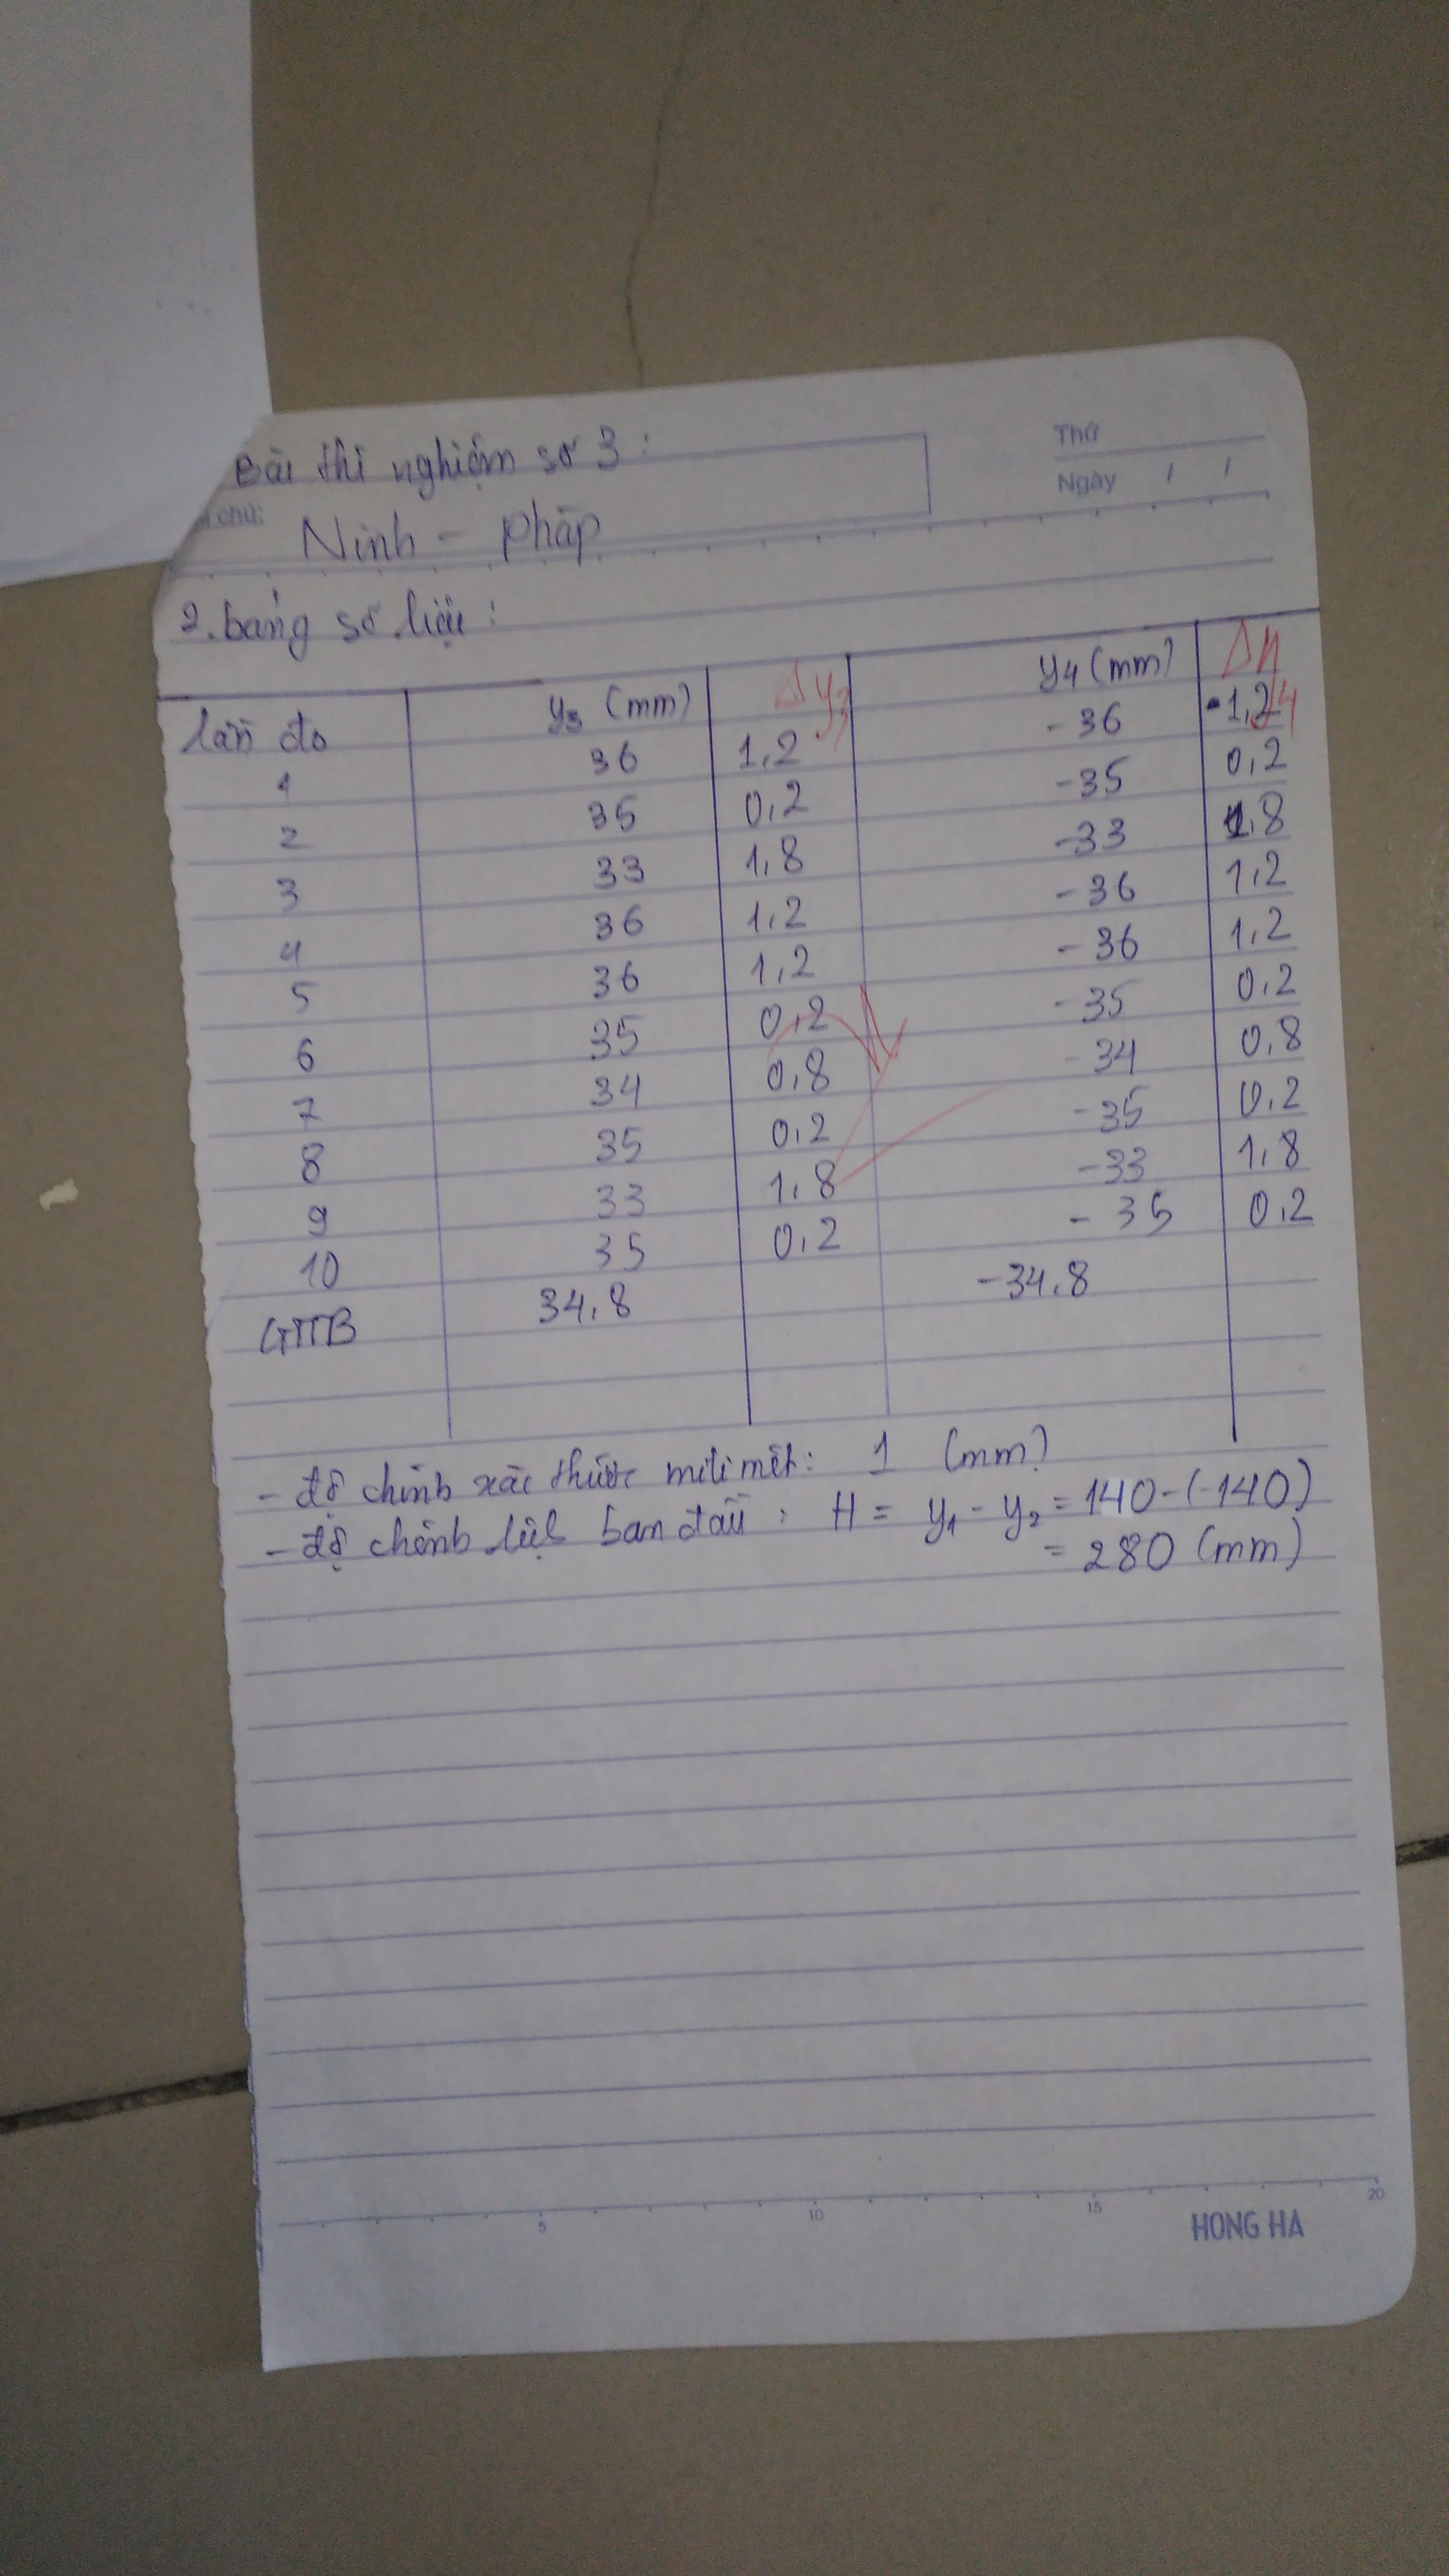 Bài thí nghiệm số 3 :
Thứ
Ngày / /
chú:
Ninh - Pháp
2. bảng số liệu :
lần đo y3 (mm) Δy3 y4 (mm) Δy4
1 36 1,2 -36 1,2
2 35 0,2 -35 0,2
3 33 1,8 -33 1,8
4 36 1,2 -36 1,2
5 36 1,2 -36 1,2
6 35 0,2 -35 0,2
7 34 0,8 -34 0,8
8 35 0,2 -35 0,2
9 33 1,8 -33 1,8
10 35 0,2 -35 0,2
GTTB 34,8 -34,8
- độ chính xác thước milimét: 1 (mm)
- độ chênh lệch ban đầu : H = y1 - y2 = 140-(-140)
= 280 (mm)
5 10 15 20
HONG HA